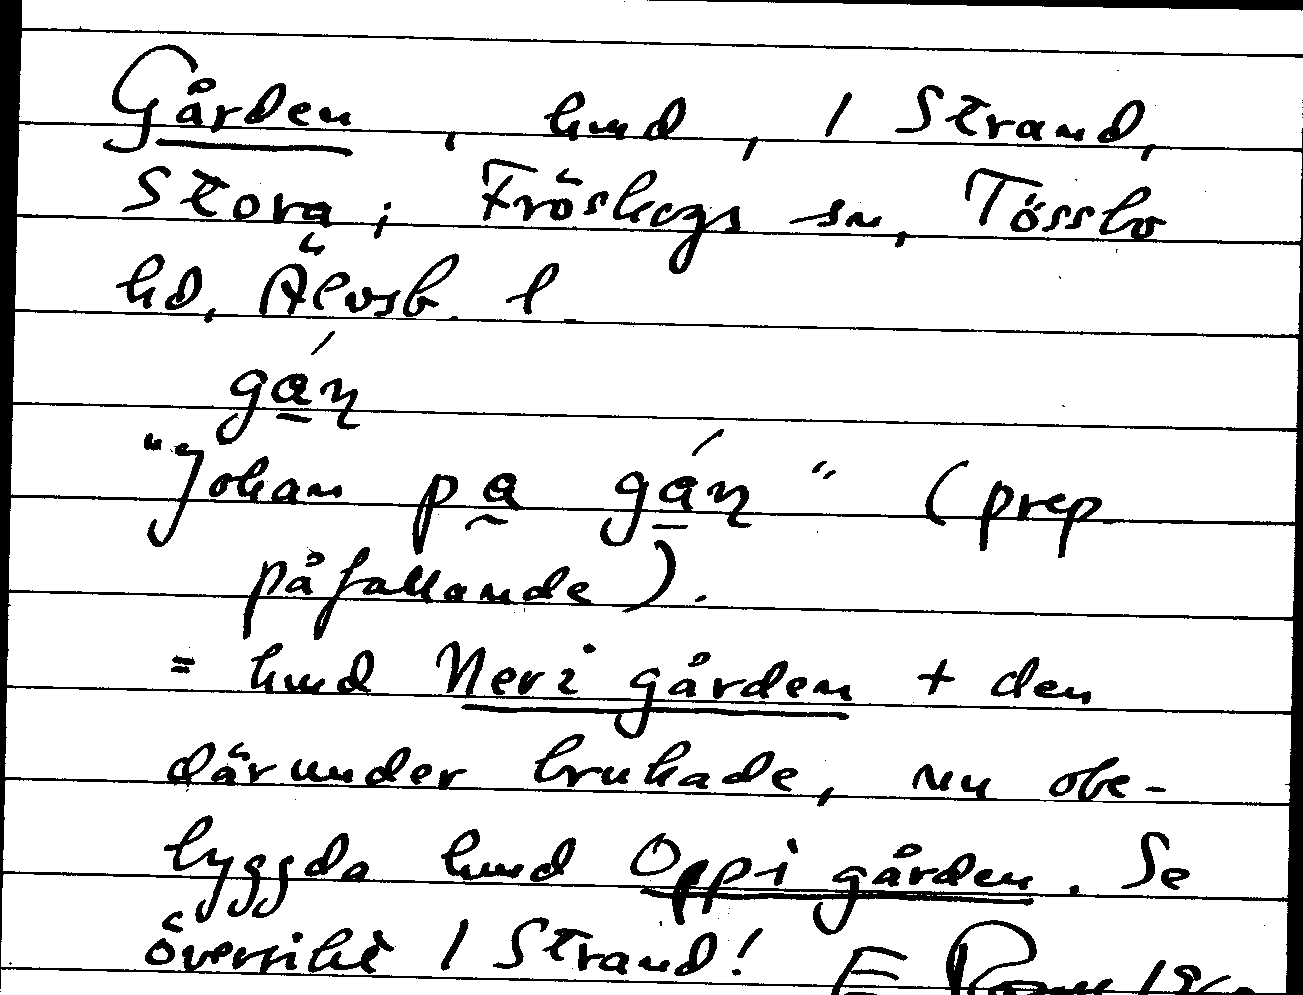 Gården, hmd, 1 Strand,
Stora; Fröskogs sn, Tössbo
hd, Älvsb. l
gá̱n̨
"Johan pa̰ gá̱n̨" (prep
påfallande).
= hmd Neri gården + den
därunder brukade, nu obe-
byggda hmd Oppi gården. Se
översikt 1 Strand! E